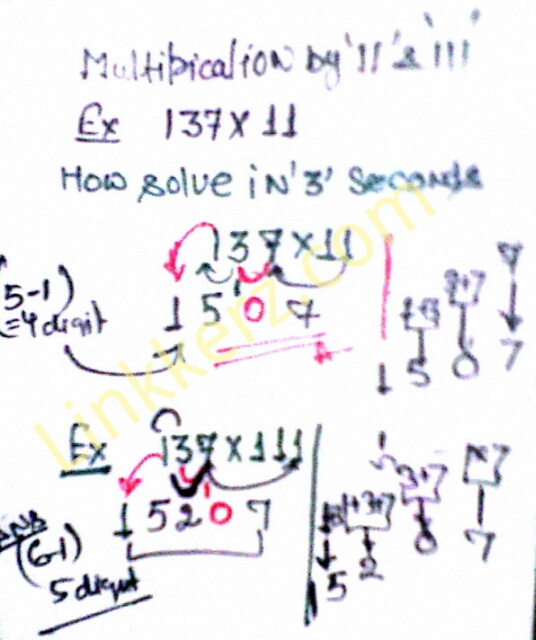 Multipication by '11' & '111'
Ex 137 x 11
How solve in '3' seconds
137 x 11
(5-1)
=4 digit
1 5 0 7
3+7 7
1 5 0 7
Linkkerz.com
Ex 137 x 111
1 5 2 0 7
ANS
(6-1)
5 digit
1+3+7 3+7
5 2 0 7